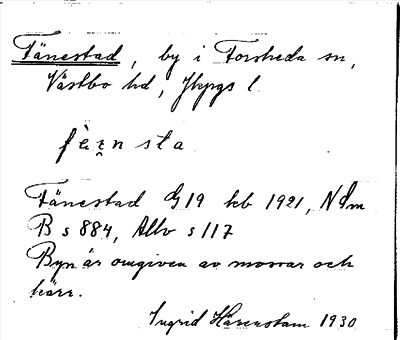 Tänestad, by i Forsheda sn,
Västbo hd, Jkpgs l.
Tänestad G19 kb 1921, NSm
B s 884, Allv s 117
Byn är omgiven av mossar och
kärr.
Ingrid Härenstam 1930